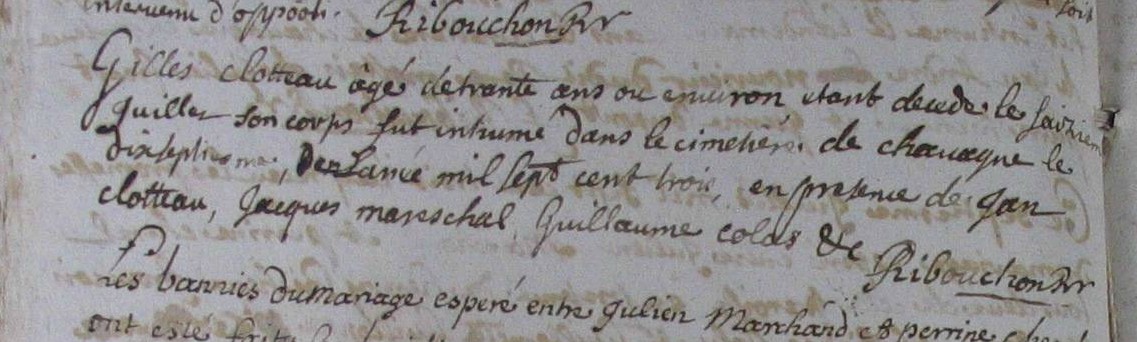 intervenu d'oppoōn. Ribouchon Rr soit
Gilles clotteau âgé de trante ans ou environ etant decede le saiziem
juillet son corps fut inhumé dans le cimetiere de chavagne le
dixseptiesme, de Lanée mil sept cent trois, en presence de Jan
clotteau, Jacques mareschal Guillaume colas &c
Ribouchon Rr
Les bannies du mariage esperé entre Julien Marchand et perrine
ont esté